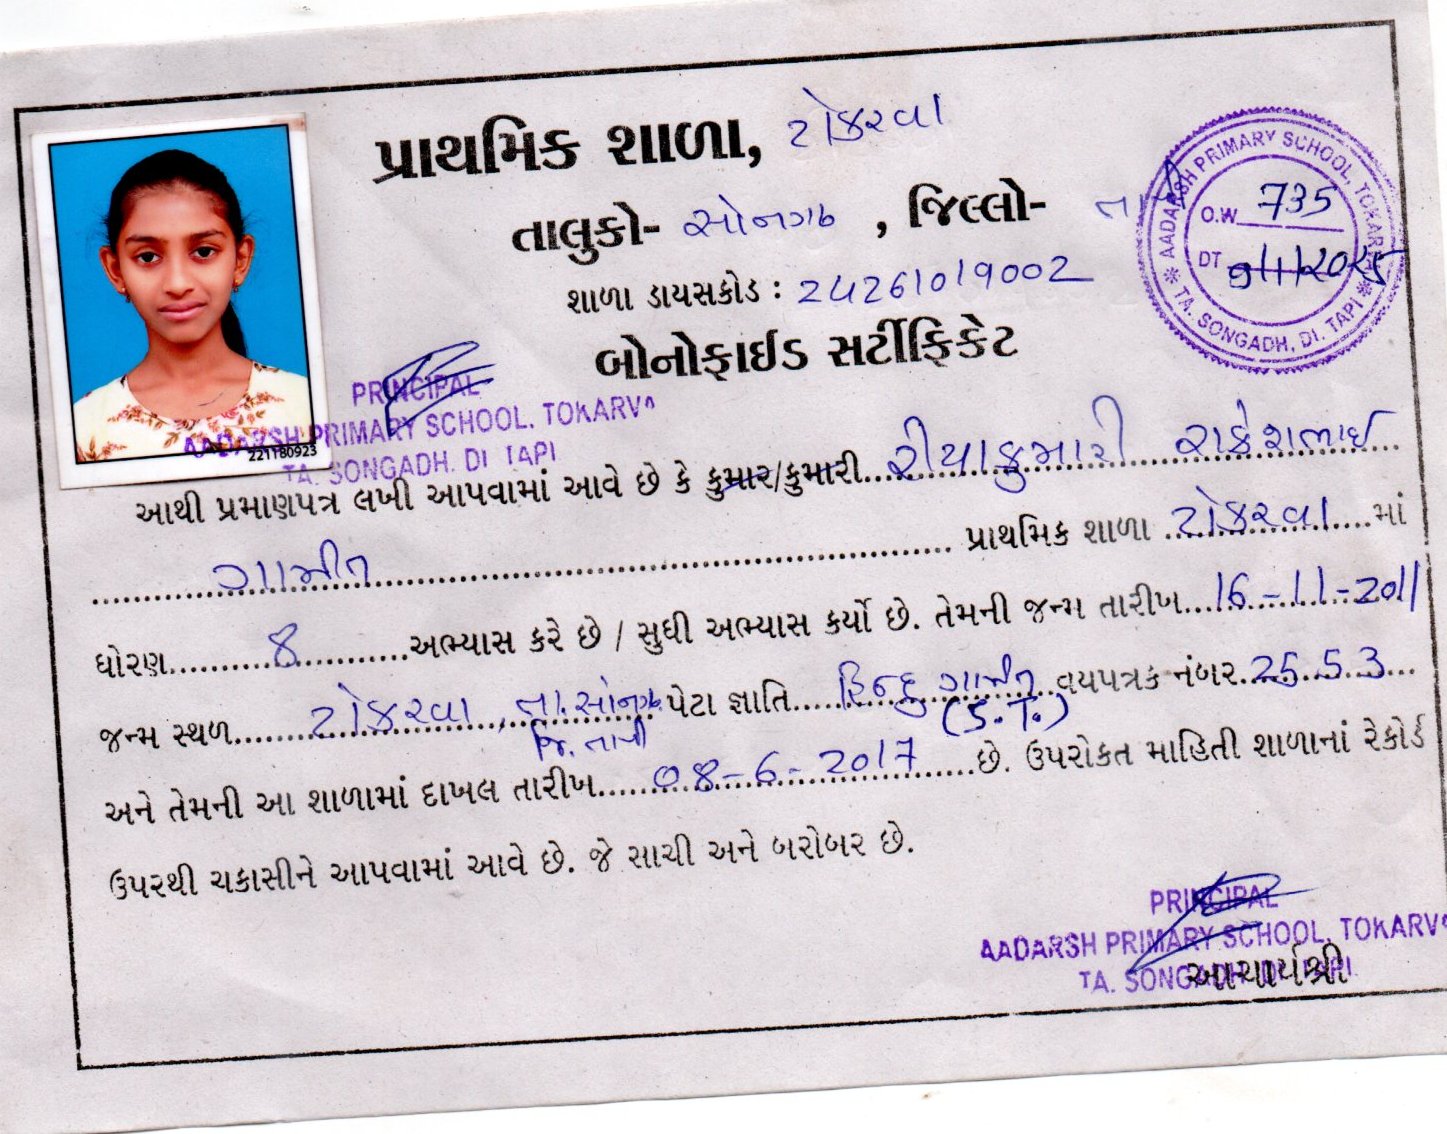 પ્રાથમિક શાળા, ટોકરવા
તાલુકો- સોનગઢ , જિલ્લો- તાપી
શાળા ડાયસકોડ : 24261019002
બોનોફાઈડ સર્ટીફિકેટ
AADARSH PRIMARY SCHOOL, TOKARVA
O.W 735
DT 9/1/2025
TA. SONGADH, DI. TAPI
221180923
PRINCIPAL
AADARSH PRIMARY SCHOOL, TOKARVA
TA. SONGADH. DI TAPI
આથી પ્રમાણપત્ર લખી આપવામાં આવે છે કે કુમાર/કુમારી રીયાકુમારી રાકેશભાઈ
ગામીત પ્રાથમિક શાળા ટોકરવા માં
ધોરણ 8 અભ્યાસ કરે છે / સુધી અભ્યાસ કર્યો છે. તેમની જન્મ તારીખ 16-11-2011
જન્મ સ્થળ ટોકરવા, તા. સોનગઢ પેટા જ્ઞાતિ હિન્દુ ગામીત વયપત્રક નંબર 2553
જિ. તાપી (S.T.)
અને તેમની આ શાળામાં દાખલ તારીખ 08-6-2017 છે. ઉપરોકત માહિતી શાળાનાં રેકોર્ડ
ઉપરથી ચકાસીને આપવામાં આવે છે. જે સાચી અને બરોબર છે.
PRINCIPAL
AADARSH PRIMARY SCHOOL, TOKARVA
TA. SONGADH DI. TAPI
આચાર્યશ્રી